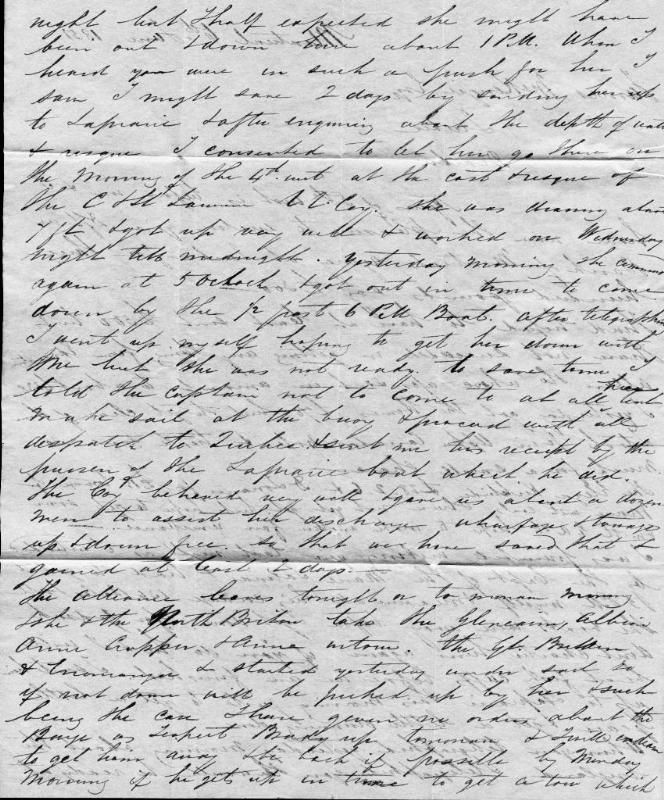 night but I half expected she might have
been out & down here about 1 PM. When I
heard you were in such a push for her I
saw I might save 2 days by sending her up
to Laprarie & after enquiring about the depth of water
& resque I consented to let her go there on
the Morning of the 4th inst at the cost & resque of
the C & St Lawrence Coy. she was drawing about
7 ft & got up very well & worked on Wednesday
night till midnight. yesterday morning she commenced
again at 5 Oclock & got out in time to come
down by the ½ past 6 PM Boat. after
I went up myself hoping to get her down with
me but she was not ready. to save time I
told the captain not to come to at all but
make sail at the buoy & proceed with all
despatch to & sent me his receipt by the
purser of the Laprarie boat which he did.
The Coy behaved very well & gave us about a dozen
men to assist her discharge wharfage & towage
up & down free so that we have saved that &
gained at least 2 days.
The Alliance leaves tonight or to morrow morning
& she & the North Briton take the Glencairn, Albion
Anne Cropper, & Anne in tow. the Gt. Britain
& started yesterday under sail &
if not down will be picked up by her & such
being the case I have given no orders about the
Barge as I expect Brady up tomorrow &
to get him away & be back if possible by Monday
Morning if he gets up in time to get a tow which